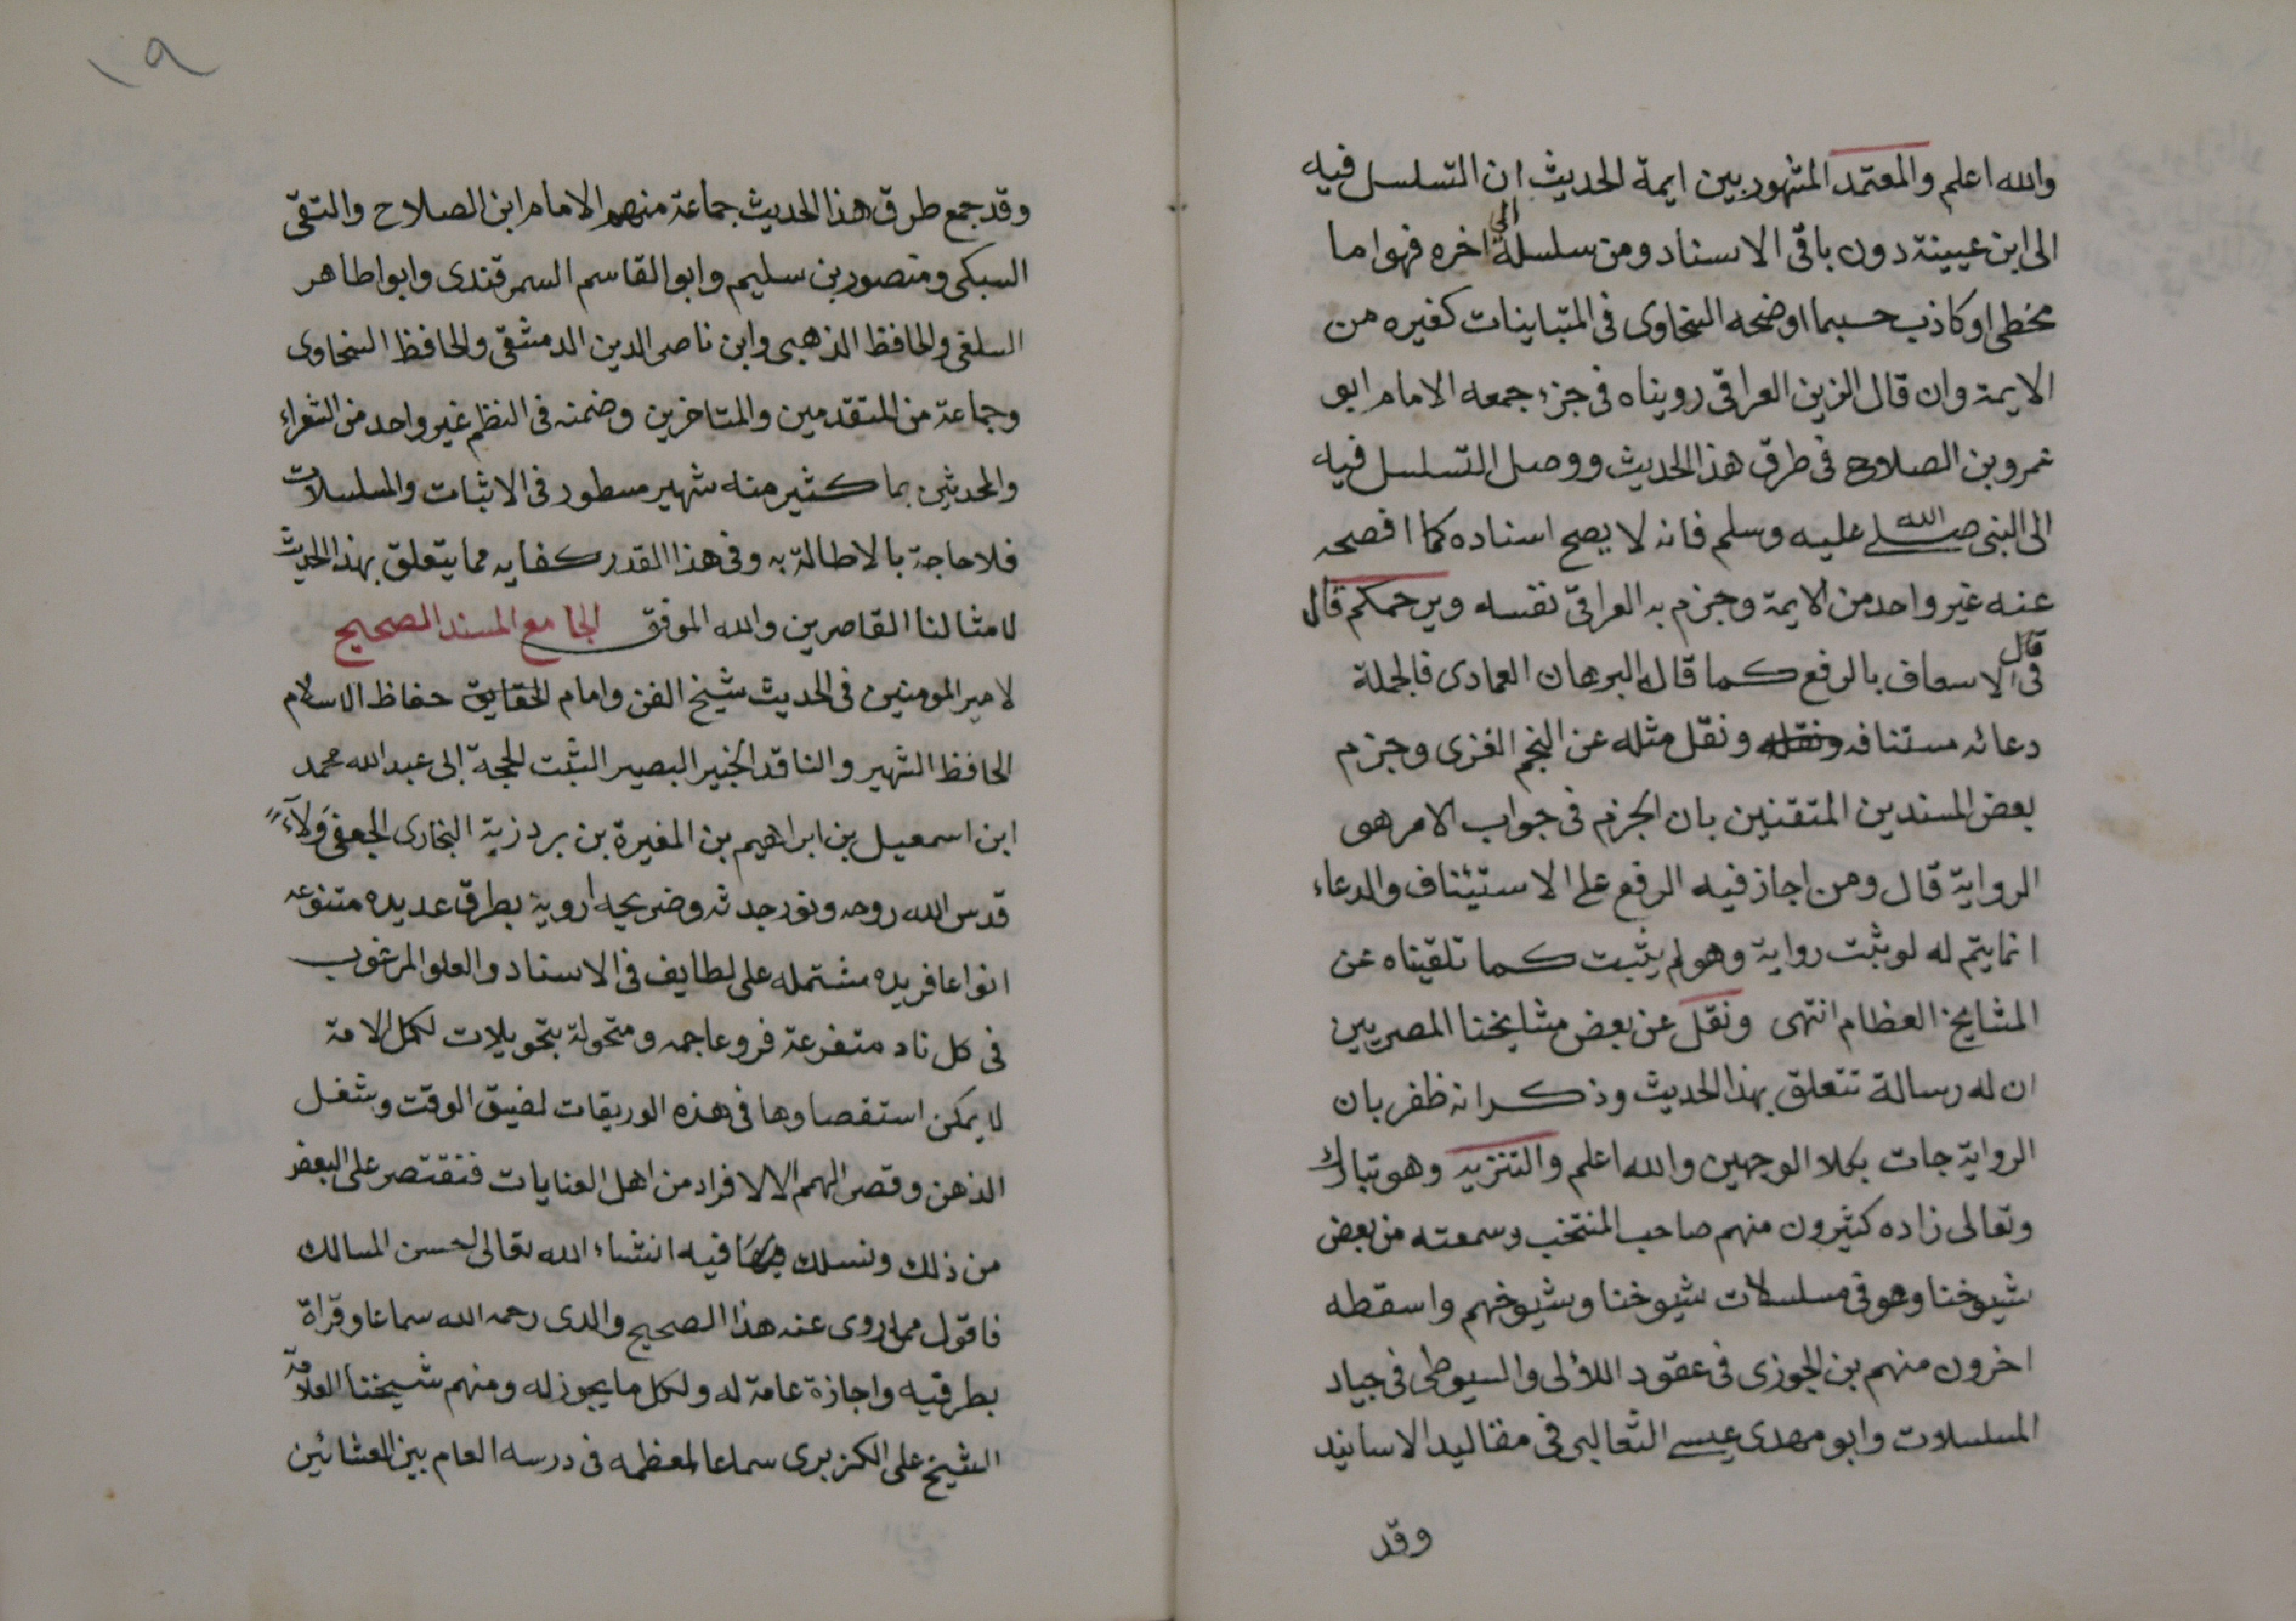 والله اعلم والمعتمد المشهور بين ايمة الحديث ان التسلسل فيه
الى ابن عيينة دون باقى الاسناد ومن سلسله الى اخره فهو اما
مخطى او كاذب حسبما اوضحه السخاوى فى المتباينات كغيره من
الايمة وان قال الزين العراقى رويناه فى جزء جمعه الامام ابو
عمرو بن الصلاح فى طرق هذا الحديث ووصل التسلسل فيه
الى النبى صلى الله عليه وسلم فانه لا يصح اسناده كما افصحه
عنه غير واحد من الايمة وجزم به العراقى نفسه ويرحمكم قال
قال فى الاسعاف بالرفع كما قال البرهان العمادى فالجملة
دعائه مستنافه ونقله ونقل مثله عن النجم الغزى وجزم
بعض المسندين المتقنين بان الجزم فى جواب الامر هى
الرواية قال ومن اجاز فيه الرفع على الاستيئناف والدعاء
انما يتم له لو ثبت رواية وهو لم يثبت كما تلقيناه عن
المشايخ العظام انتهى ونقل عن بعض مشايخنا المصريين
ان له رسالة تتعلق بهذا الحديث وذكر انه ظفر بان
الرواية جات بكلا الوجهين والله اعلم والتنزيه وهو تبارك
وتعالى زاده كثيرون منهم صاحب المنتخب وسمعته من بعض
شيوخنا وهو فى مسلسلات شيوخنا وشيوخهم واسقطه
اخرون منهم بن الجوزى فى عقود اللؤلى والسيوطى فى جياد
المسلسلات وابو مهدى عيسى الثعالبى فى مقاليد الاسانيد
وقد
١٩
وقد جمع طرق هذا الحديث جماعة منهم الامام ابن الصلاح والتقى
السبكى ومنصور بن سليم وابو القاسم السمرقندى وابو اطاهر
السلفى والحافظ الذهبى وابن ناصر الدين الدمشقى والحافظ السخاوى
وجماعة من المتقدمين والمتاخرين وضمنه فى النظم غير واحد من الشعراء
والمحدثين بما كثير منه شهير مسطور فى الاثبات والمسلسلات
فلا حاجة بالاطالة به وفى هذا القدر كفايه مما يتعلق بهذا الحديث
لامثالنا القاصرين والله الموفق الجامع المسند الصحيح
لامير المومنين فى الحديث شيخ الفن وامام الحقايق حفاظ الاسلام
الحافظ الشهير والناقد الخبير البصير الثبت الحجة ابى عبد الله محمد
ابن اسمعيل بن ابراهيم بن المغيرة بن بردزبة البخارى الجعفى وَلآءً
قدس الله روحه ونور جدثه وضريحه ارويه بطرق عديده متنوعه
انواعا فريده مشتمله على لطايف فى الاسناد والعلو المرغوب
فى كل ناد متفرعة فروعا جمه ومتحولة بتحويلات لكمل الامة
لا يمكن استقصاوها فى هذه الوريقات لضيق الوقت وشغل
الذهن وقصر الهمم الا لافراد من اهل العنايات فنقتصر على البعض
من ذلك ونسلك فيه انشاء الله تعالى احسن المسالك
فاقول ممن اروى عنه هذا الصحيح والدى رحمه الله سماعا وقراة
بطرفيه واجازة عامة له ولكل ما يجوز له ومنهم شيخنا العلامة
الشيخ على الكزبرى سماعا لمعظمه فى درسه العام بين العشائين